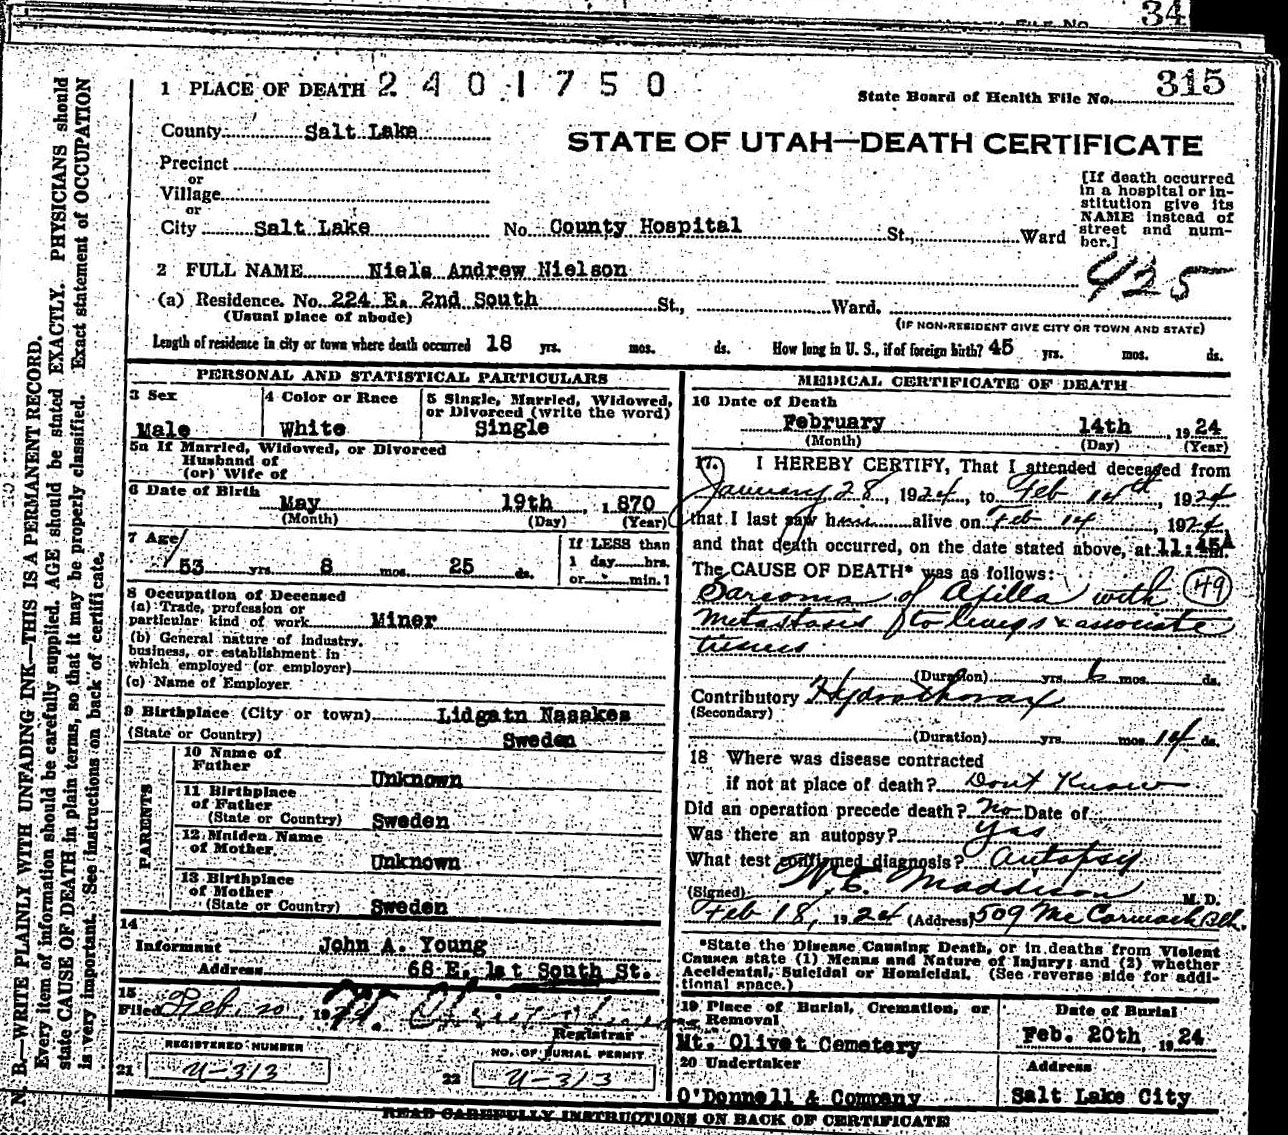 34
File No.
1 PLACE OF DEATH 2401750
State Board of Health File No. 315
County Salt Lake
STATE OF UTAH—DEATH CERTIFICATE
Precinct
or
Village
or
City Salt Lake No. County Hospital St., Ward
[If death occurred
in a hospital or in-
stitution give its
NAME instead of
street and num-
ber.]
2 FULL NAME Niels Andrew Nielson
425
(a) Residence. No. 224 E. 2nd South St., Ward.
(Usual place of abode)
(IF NON-RESIDENT GIVE CITY OR TOWN AND STATE)
Length of residence in city or town where death occurred 18 yrs. mos. ds. How long in U. S., if of foreign birth? 45 yrs. mos. ds.
PERSONAL AND STATISTICAL PARTICULARS
3 Sex
Male
4 Color or Race
White
5 Single, Married, Widowed,
or Divorced (write the word)
Single
5a If Married, Widowed, or Divorced
Husband of
(or) Wife of
6 Date of Birth
May 19th, 1870
(Month) (Day) (Year)
7 Age
53 yrs. 8 mos. 25 ds.
If LESS than
1 day hrs.
or min.
8 Occupation of Deceased
(a) Trade, profession or
particular kind of work Miner
(b) General nature of industry,
business, or establishment in
which employed (or employer)
(c) Name of Employer
9 Birthplace (City or town) Lidgatn Nasakes
(State or Country) Sweden
PARENTS
10 Name of
Father Unknown
11 Birthplace
of Father
(State or Country) Sweden
12 Maiden Name
of Mother Unknown
13 Birthplace
of Mother
(State or Country) Sweden
14
Informant John A. Young
Address 68 E. 1st South St.
15
Filed Feb. 20, 1924
Registrar
REGISTERED NUMBER
21 U-313
NO. OF BURIAL PERMIT
22 U-313
MEDICAL CERTIFICATE OF DEATH
16 Date of Death
February 14th, 1924
(Month) (Day) (Year)
17. I HEREBY CERTIFY, That I attended deceased from
January 28, 1924, to Feb 14th, 1924
that I last saw him alive on Feb 14, 1924
and that death occurred, on the date stated above, at 11:45A m.
The CAUSE OF DEATH* was as follows:
49
Sarcoma of Axilla with
metastasis to lungs & associate
tissues
(Duration) yrs. 6 mos. ds.
Contributory Hydrothorax
(Secondary)
(Duration) yrs. mos. 14 ds.
18 Where was disease contracted
if not at place of death? Dont Know
Did an operation precede death? No Date of
Was there an autopsy? Yes
What test confirmed diagnosis? Autopsy
(Signed) Maddison M. D.
Feb 18, 1924 (Address) 509 McCornick Blk.
*State the Disease Causing Death, or in deaths from Violent
Causes state (1) Means and Nature of Injury; and (2) whether
Accidental, Suicidal or Homicidal. (See reverse side for addi-
tional space.)
19 Place of Burial, Cremation, or
Removal
Mt. Olivet Cemetery
Date of Burial
Feb. 20th, 1924
20 Undertaker
O'Donnell & Company
Address
Salt Lake City
READ CAREFULLY INSTRUCTIONS ON BACK OF CERTIFICATE
N. B.—WRITE PLAINLY WITH UNFADING INK—THIS IS A PERMANENT RECORD.
Every item of information should be carefully supplied. AGE should be stated EXACTLY. PHYSICIANS should
state CAUSE OF DEATH in plain terms, so that it may be properly classified. Exact statement of OCCUPATION
is very important. See instructions on back of certificate.